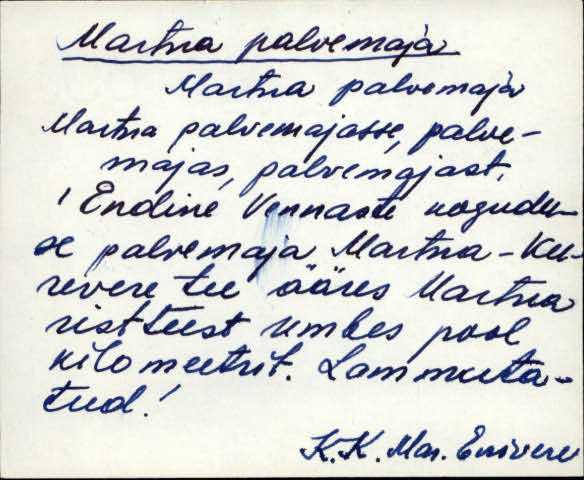 Martna palvemaja
Martna palvemaja
Martna palvemajasse, palve-
majas, palvemajast.
! Endine Vennaste kogudu-
se palvemaja Martna-Ke-
revere tee ääres Martna
ristteest umbes pool
kilomeetrit. Lammuta-
tud!
K.K. Mar. Enivere